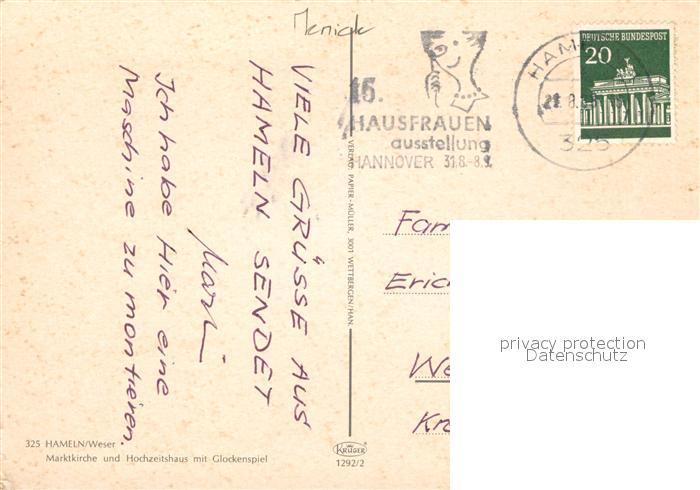 Menick
VIELE GRÜSSE AUS
HAMELN SENDET
Ich habe Hier eine
Maschine zu montieren.
325 HAMELN/Weser
Marktkirche und Hochzeitshaus mit Glockenspiel
VERLAG PAPIER-MÜLLER, 3001 WETTBERGEN/HAN.
KRÜGER
1292/2
16.
HAUSFRAUEN
ausstellung
HANNOVER 31.8.-8.9.
HAM
21.8.
325
DEUTSCHE BUNDESPOST
20
Fam
Eric
We
Kr
privacy protection
Datenschutz